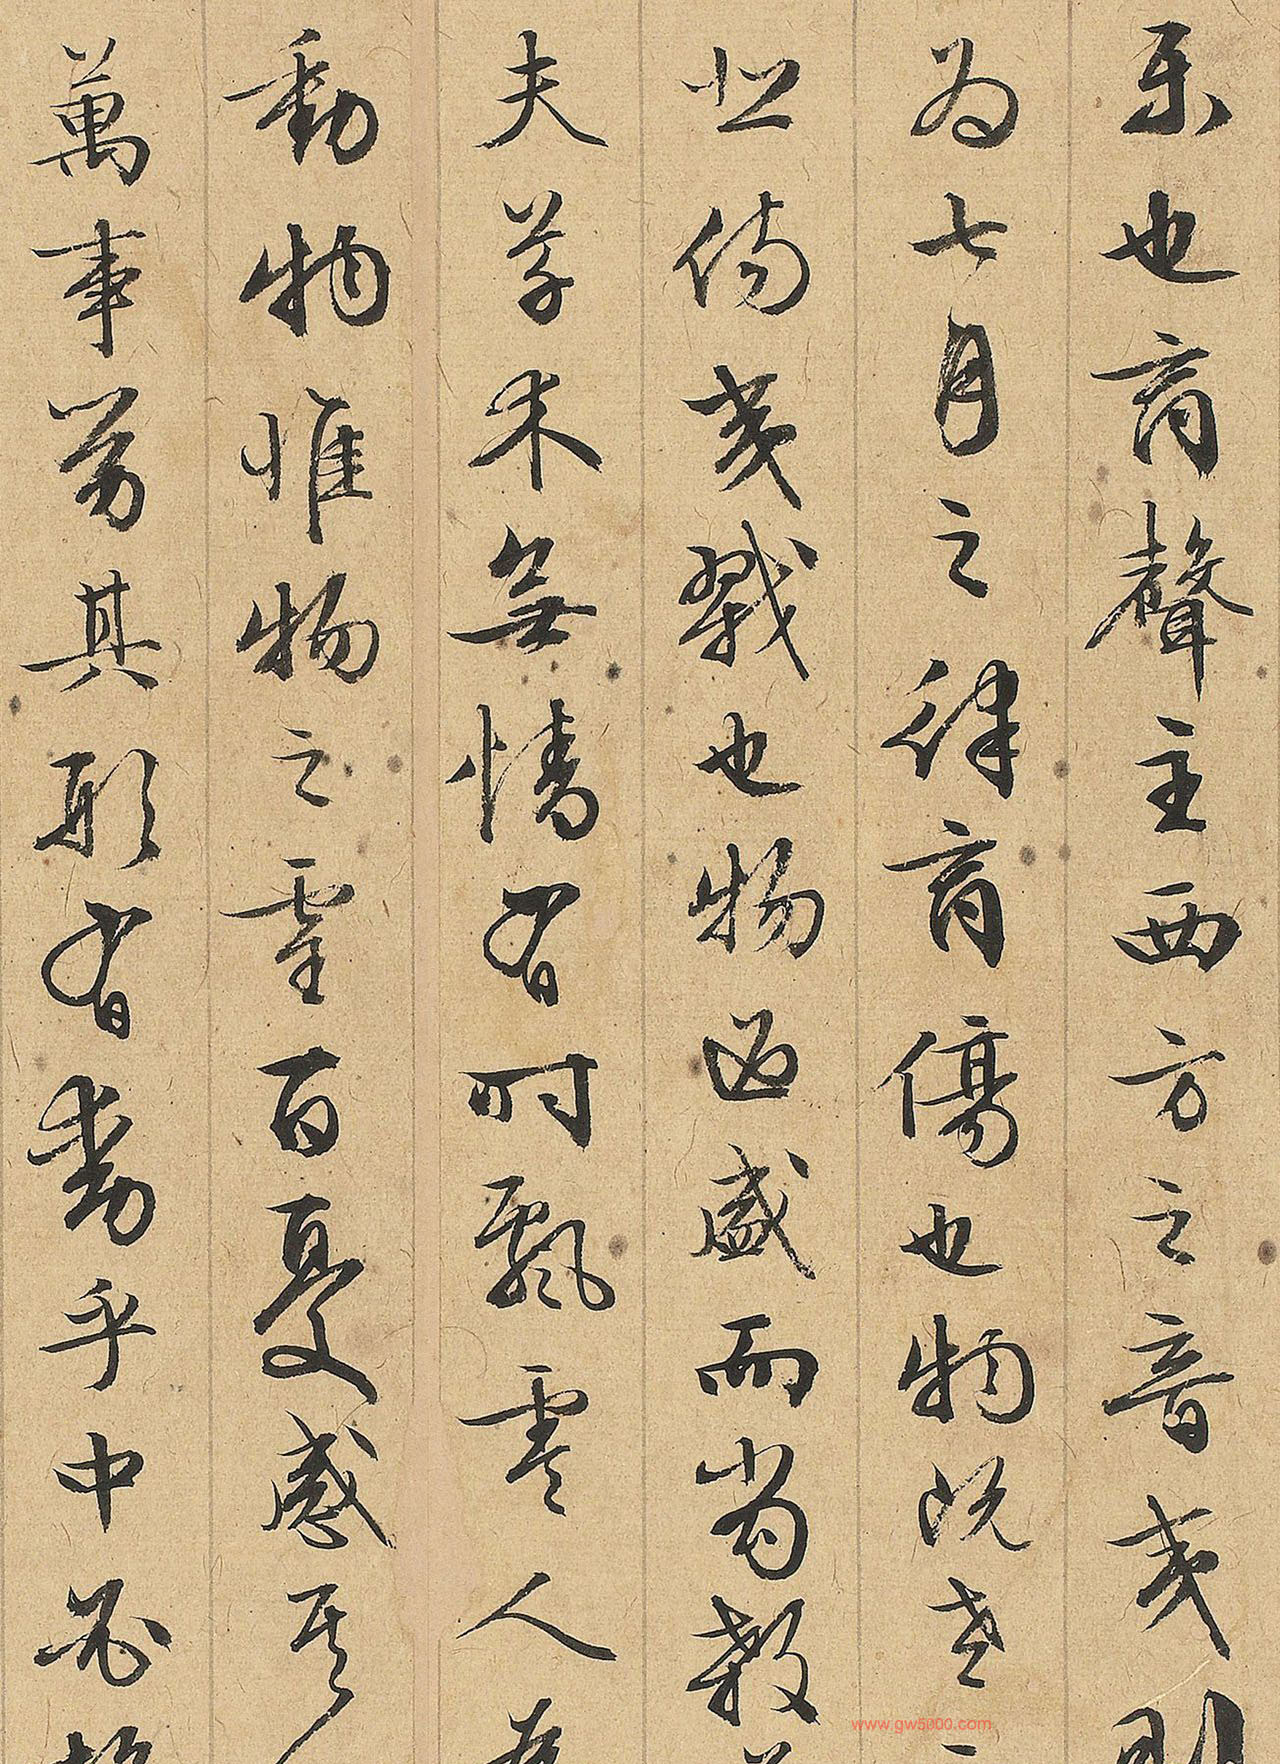 樂也商聲主西方之音夷則
為七月之律商傷也物既老
悲傷夷戮也物過盛而當殺
夫草木無情有時飄零人為
動物惟物之靈百憂感其
萬事勞其形有動乎中必
www.gw5000.com